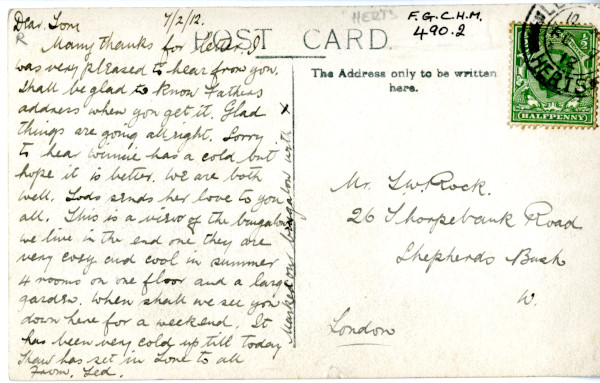 Dear Tom 7/2/12.
Many thanks for letter. I
was very pleased to hear from you.
Shall be glad to know Fathers
address when you get it. Glad
things are going allright. Sorry
to hear winnie has a cold but
hope it is better. we are both
well. sends her love to you
all. This is a view of the bungalow
we live in the end one they are
very cosy and cool in summer
4 rooms on one floor and a large
garden. when shall we see you
down here for a weekend. It
has been very cold up till today
Thaw has set in Love to all
From. Ted.
Marked our bungalow with X
POST CARD.
HERTS
F.G.C.H.M.
490.2
The Address only to be written
here.
HERTS
HALFPENNY
Mr. T. W. Rock.
26 Thorpebank Road
Shepherds Bush
W.
London